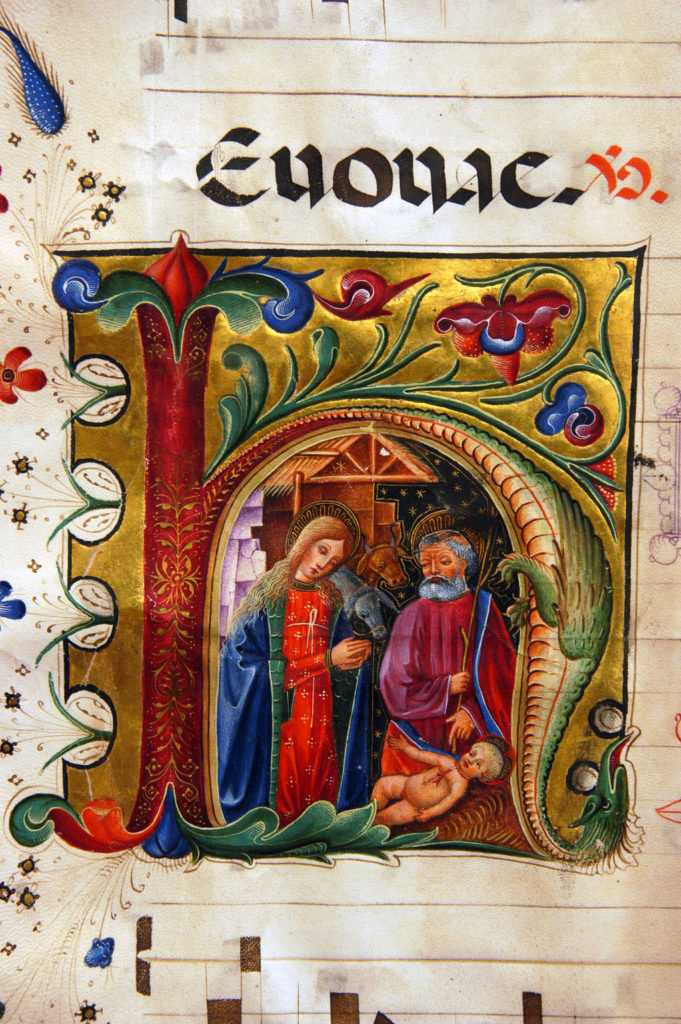 Euouae.
h